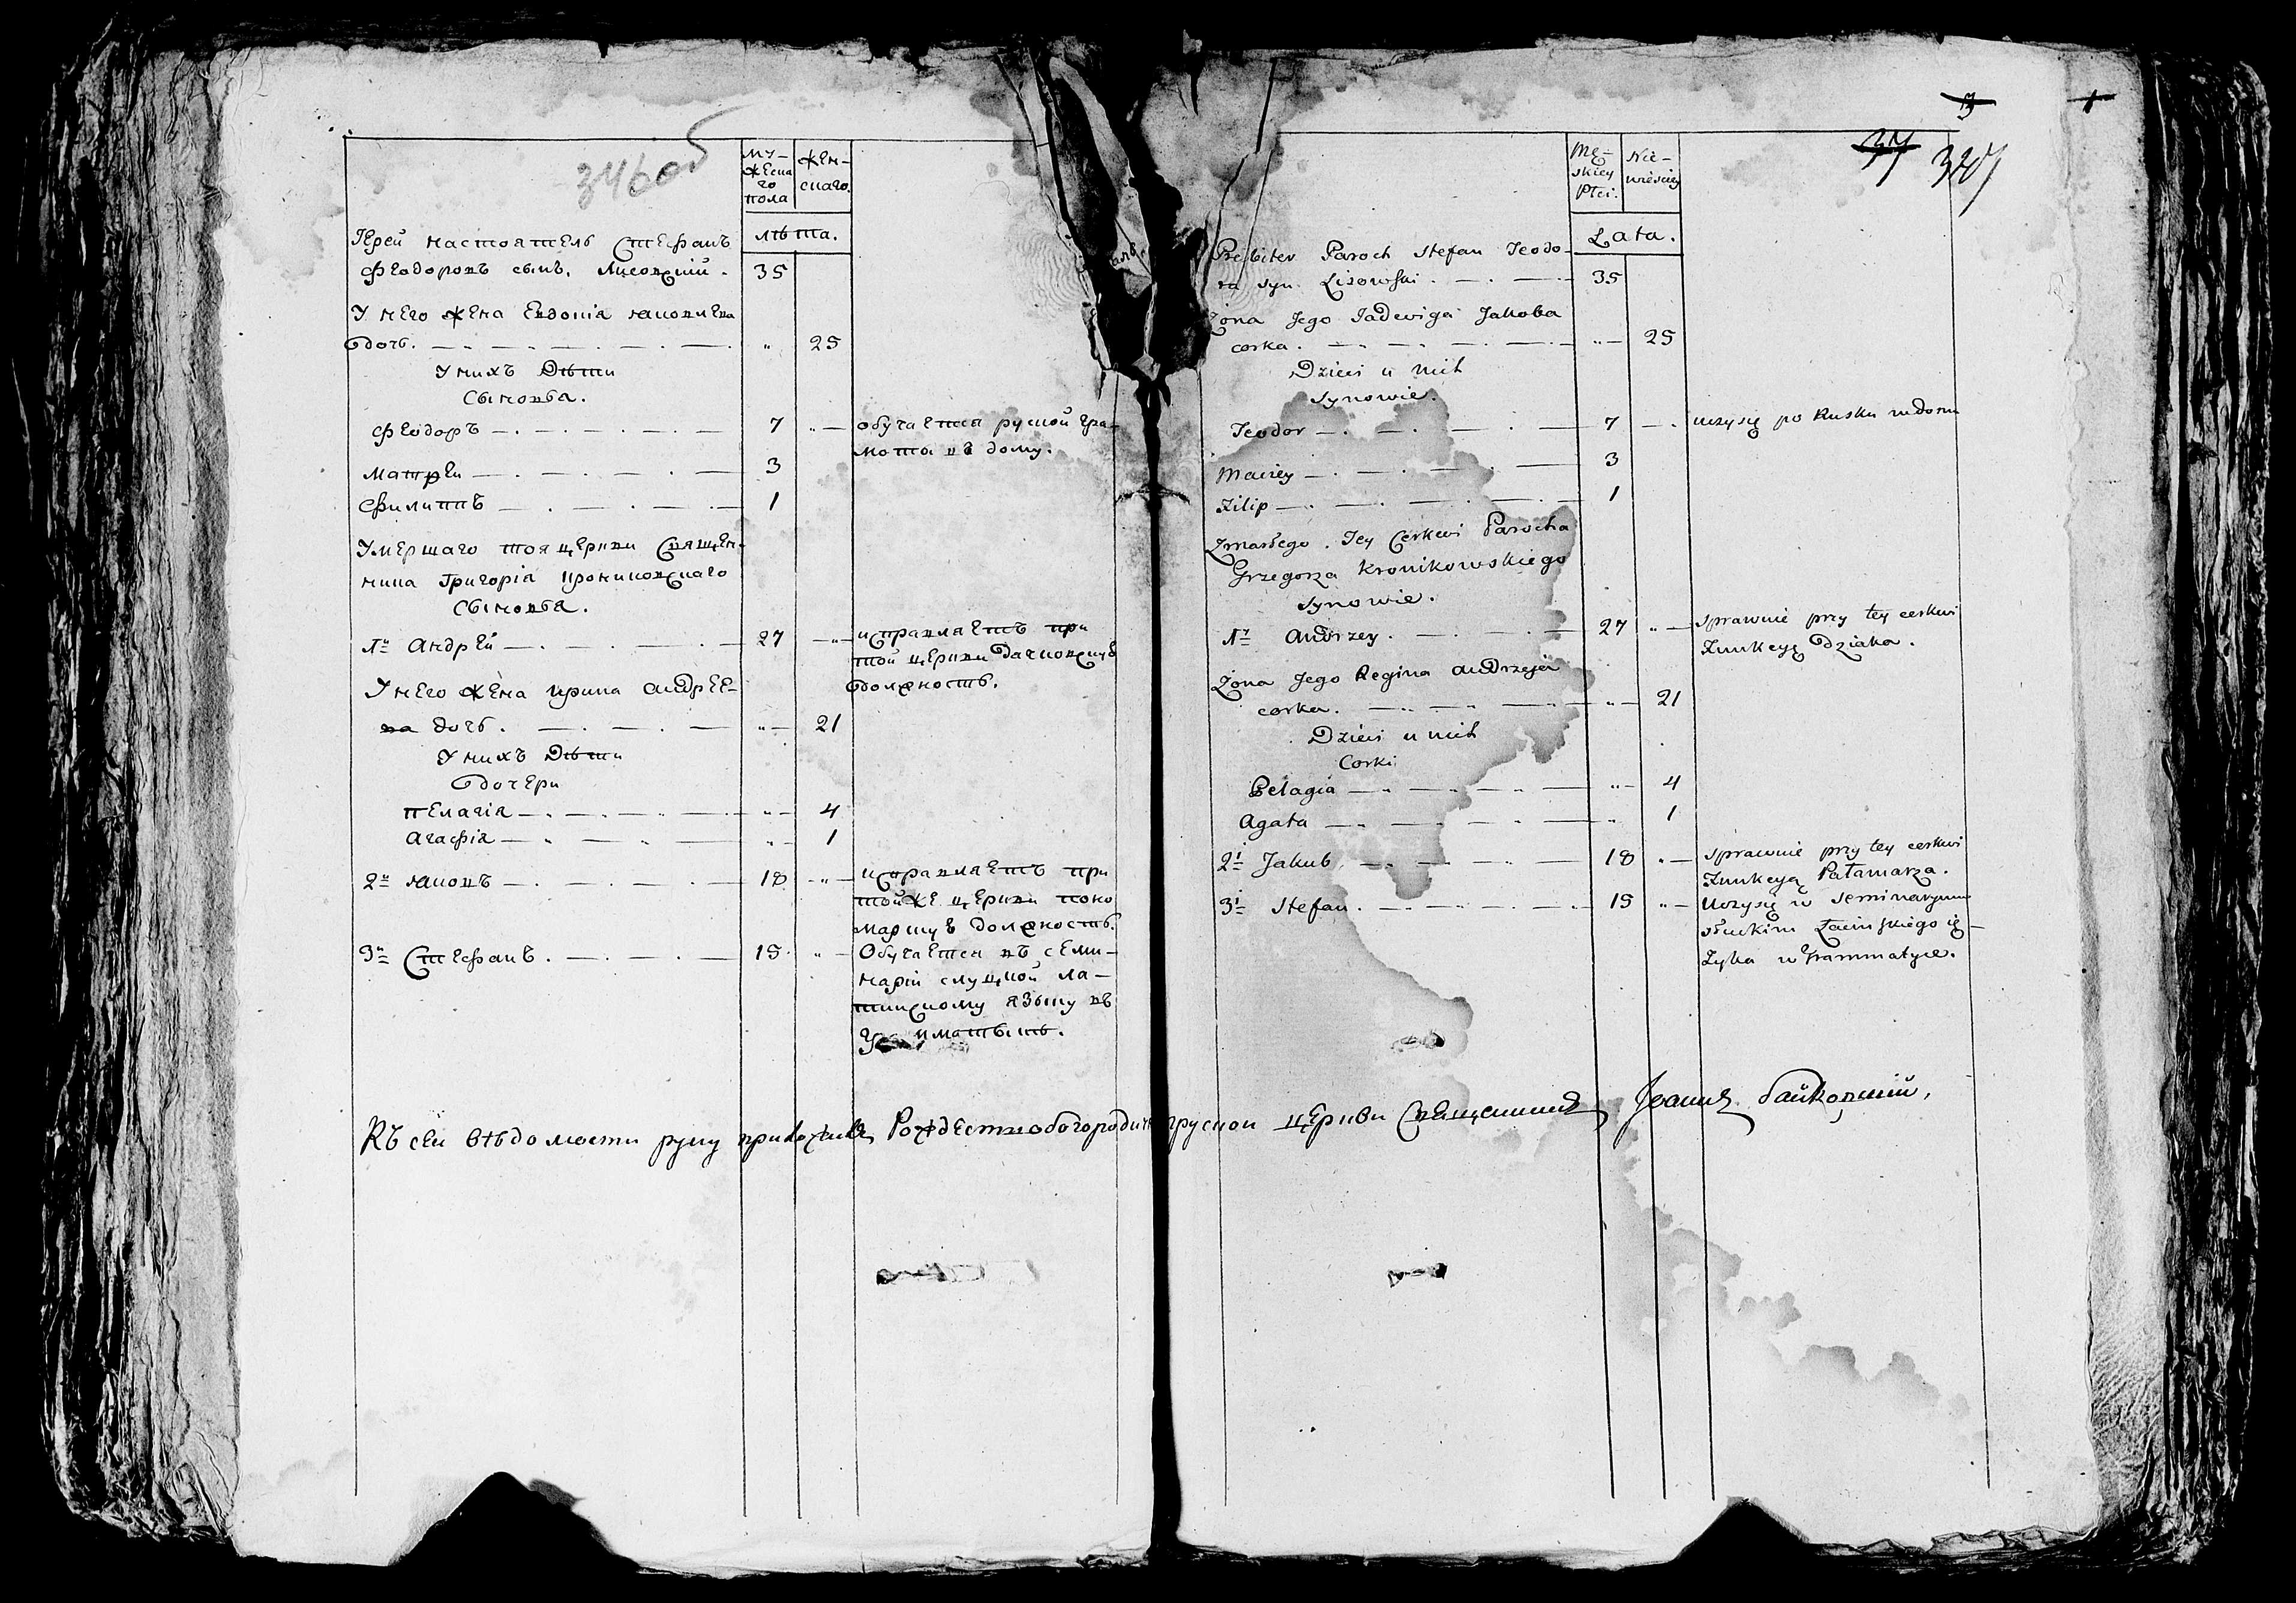 346 об
му-
жеска
го
пола
жен-
скаго.
лѣта.
Іерей настоятель Стефанъ
Феодоровъ сынъ, Лисовскій. 35
У него жена Евдокія Яковлева
дочь. — " 25
У нихъ Дѣти
Сыновья.
Феодоръ — 7 " — обучается руской гра-
моты въ дому.
Матфей — 3
Филиппъ — 1
Умершаго тоя церкви Священ-
ника Григорія Крониковскаго
Сыновья.
1й Андрей — 27 — " — исправляетъ при
той церкви дячковскую
должность.
У него жена Ирина Андрее-
ва дочь. — " — 21
У нихъ Дѣти
Дочери
Пелагія — " — 4
Агафія — " — 1
2й Яковъ — 18 — " — исправляетъ при
той же церкви поно
марскую должность.
3й Стефанъ. — 15 " — Обучается въ семи-
наріи слуцкой ла-
тинскому языку въ
3
1
37 347
Mę-
skiey
Płci.
Nie-
wieściey
Lata.
Prebiter Paroch Stefan Teodo-
ra syn Lisowski. — 35
Żona Jego Jadwiga Jakoba
corka. — " — 25
Dzieci u nich
Synowie.
Teodor — 7 — uczy się po Rusku w domu
Maciey — 3
Filip — 1
Zmarłego Tey Cerkwi Parocha
Grzegorza Kronikowskiego
Synowie.
1y Andrzey. — 27 " — sprawuie przy tey cerkwi
Funkcyę Dziaka.
Żona Jego Regina Andrzeja
corka. — " — 21
Dzieci u nich
Corki
Pelagia — " — 4
Agata — " 1
2i Jakub — 18 " — sprawuie przy tey cerkwi
Funkcyą Pałamarza.
3i Stefan. — 15 " — Uczy się w Seminaryum
słuckim Łacińskiego ię-
zyka w Grammatyce.
Къ сей вѣдомости руку приложилъ Рождествобогородич церкви Священникъ Іоаннъ